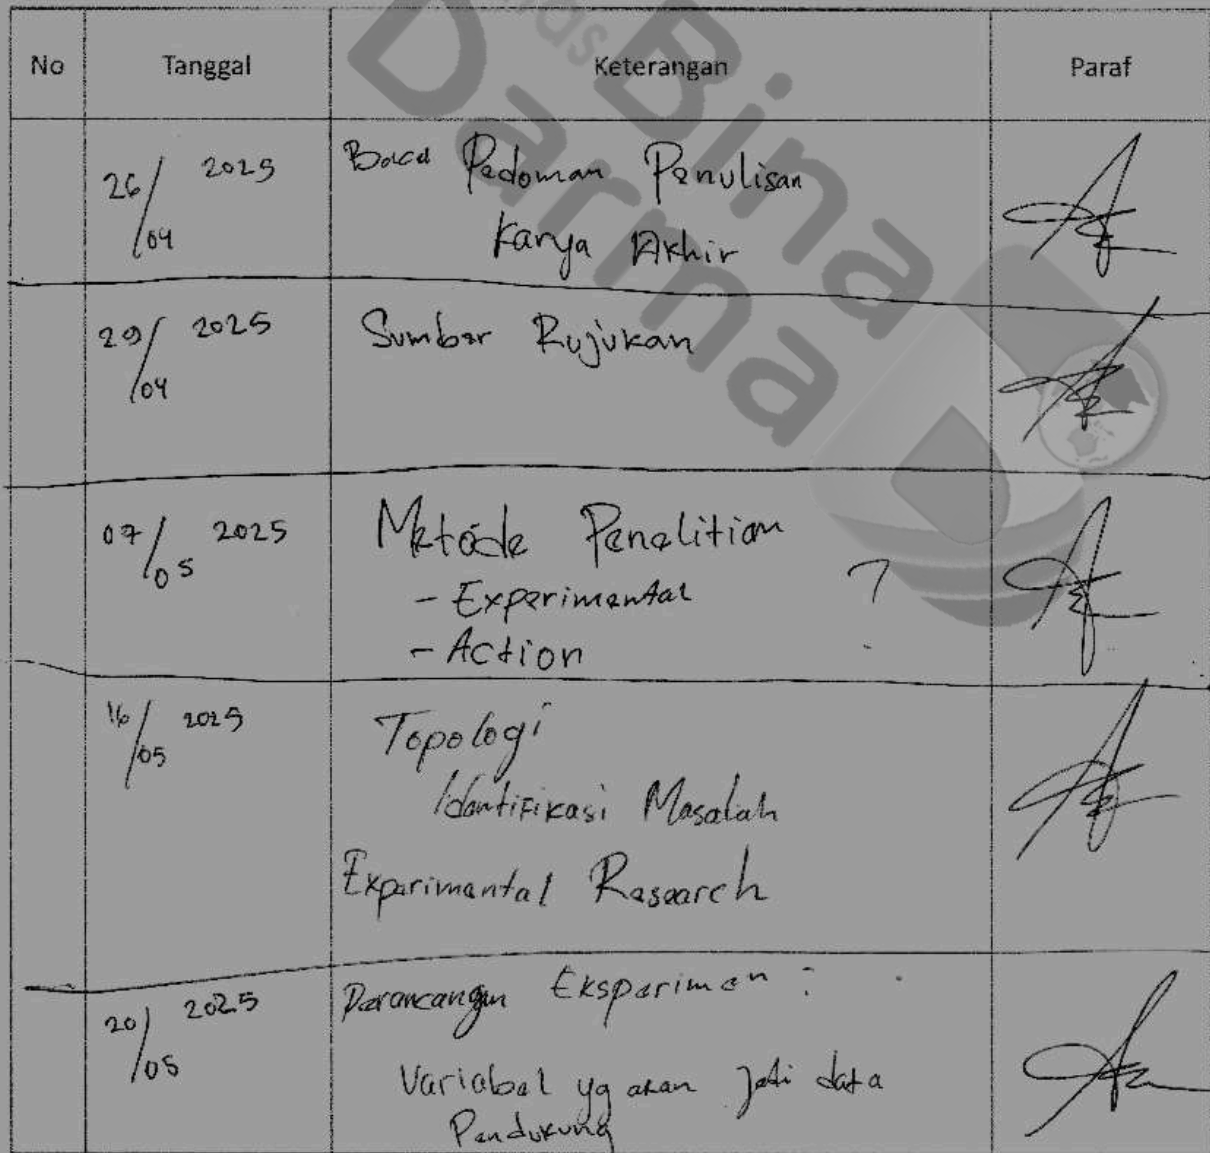 No Tanggal Keterangan Paraf
26/04 2025 Baca Pedoman Penulisan
Karya Akhir
29/04 2025 Sumber Rujukan
07/05 2025 Metode Penelitian
- Experimental ?
- Action
16/05 2025 Topologi
Identifikasi Masalah
Experimental Research
20/05 2025 Perancangan Eksperimen :
Variabel yg akan jadi data
Pendukung
Bina
Darma